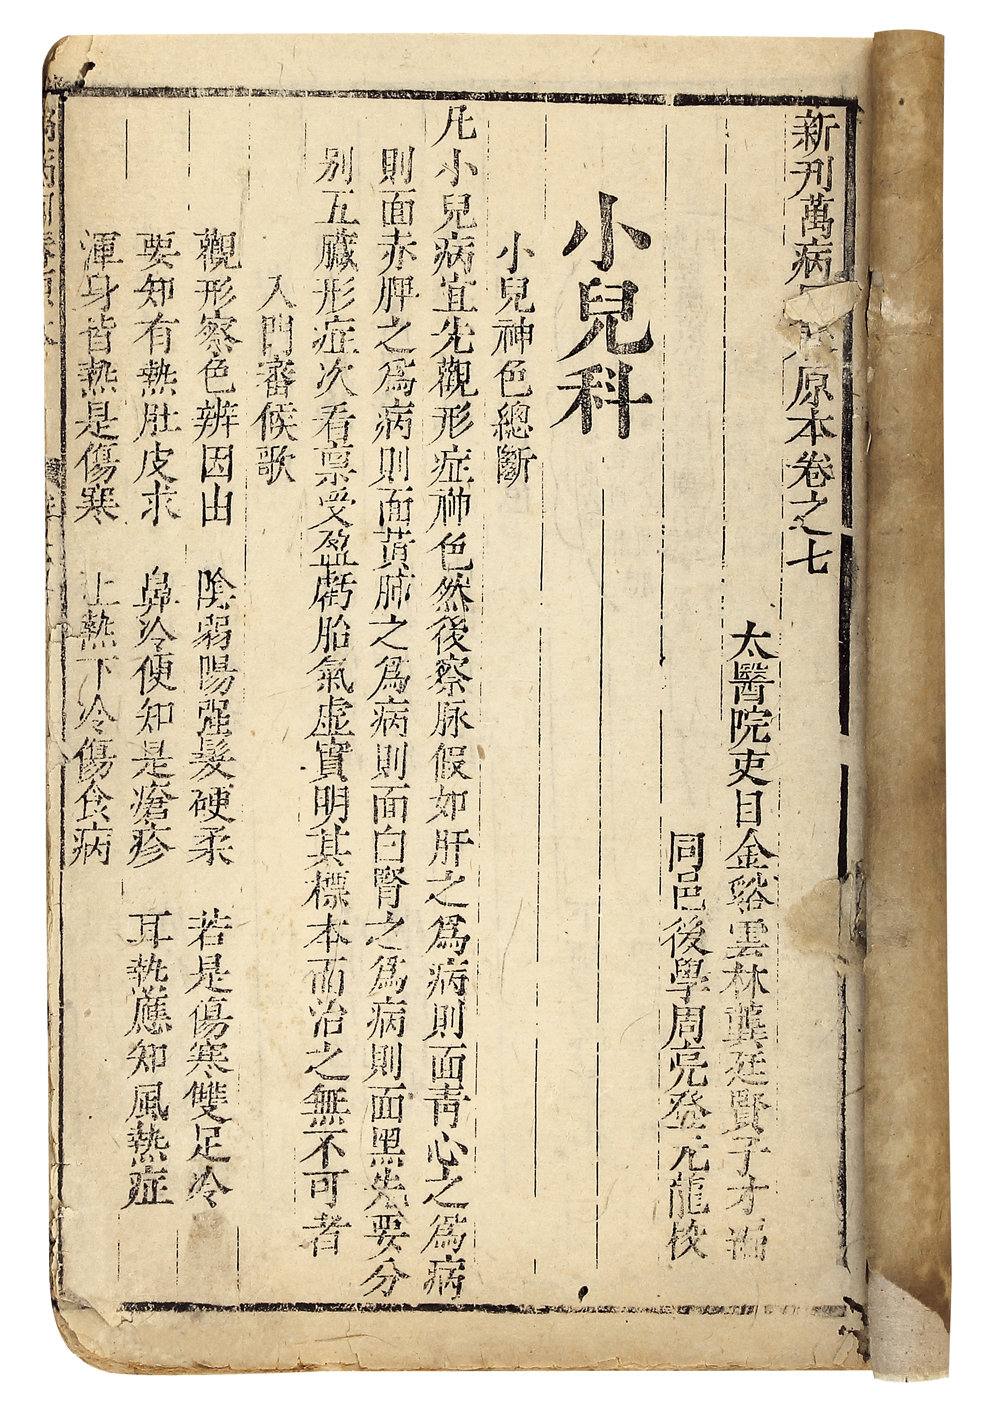 新刊萬病原本卷之七
太醫院吏目金谿雲林龔廷賢子才編
同邑後學周亮登元龍校
小兒科
小兒神色總斷
凡小兒病宜先觀形症神色然後察脉假如肝之爲病則面青心之爲病
則面赤脾之爲病則面黃肺之爲病則面白腎之爲病則面黑先要分
別五臟形症次看稟受盈虧胎氣虛實明其標本而治之無不可者
入門審候歌
觀形察色辨因由 陰弱陽强髮硬柔 若是傷寒雙足冷
要知有熱肚皮求 鼻冷便知是瘡疹 耳熱應知風熱症
渾身皆熱是傷寒 上熱下冷傷食病